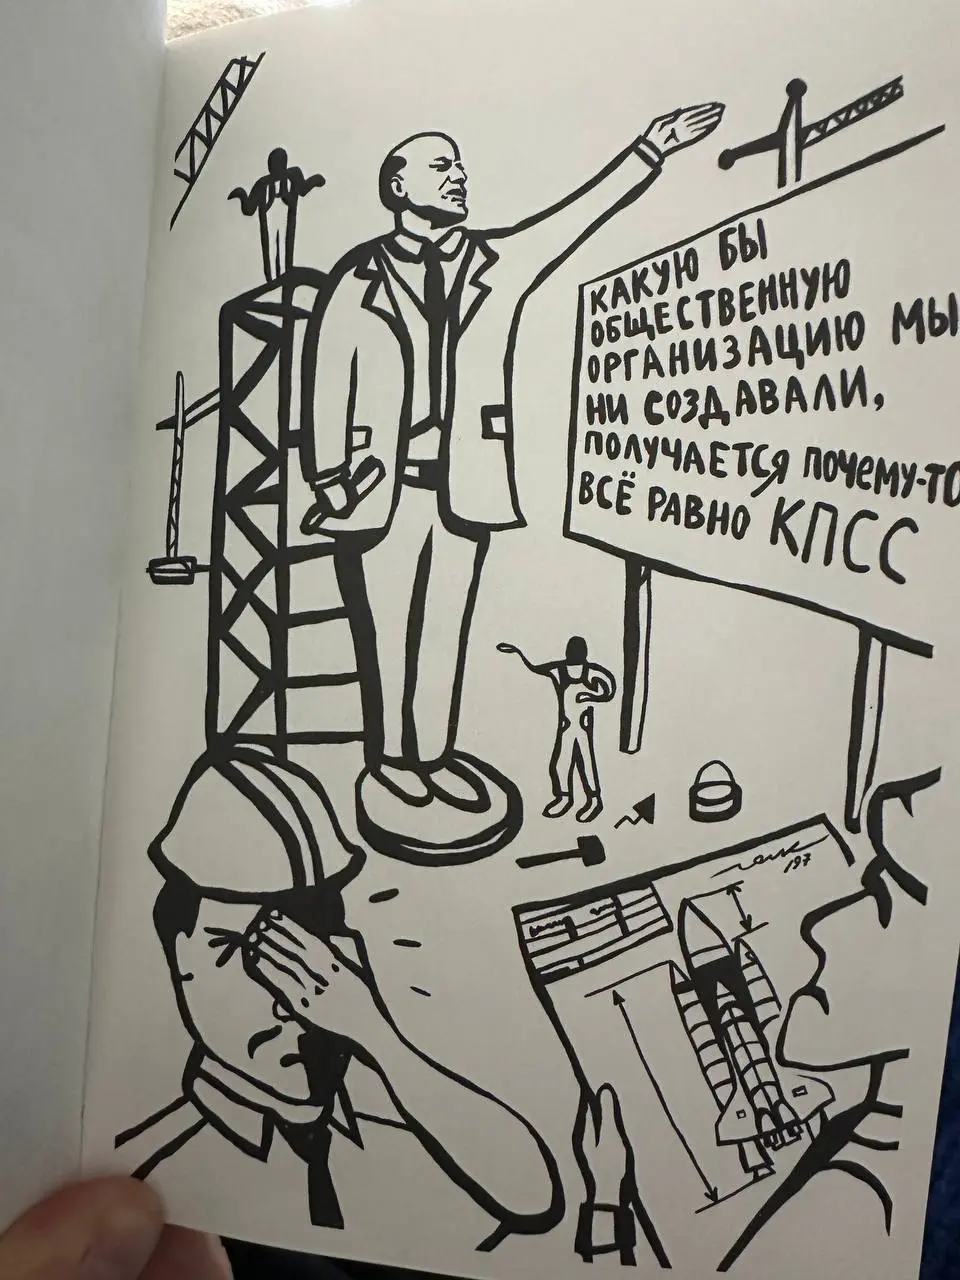 КАКУЮ БЫ
ОБЩЕСТВЕННУЮ
ОРГАНИЗАЦИЮ МЫ
НИ СОЗДАВАЛИ,
ПОЛУЧАЕТСЯ ПОЧЕМУ-ТО
ВСЁ РАВНО КПСС
197